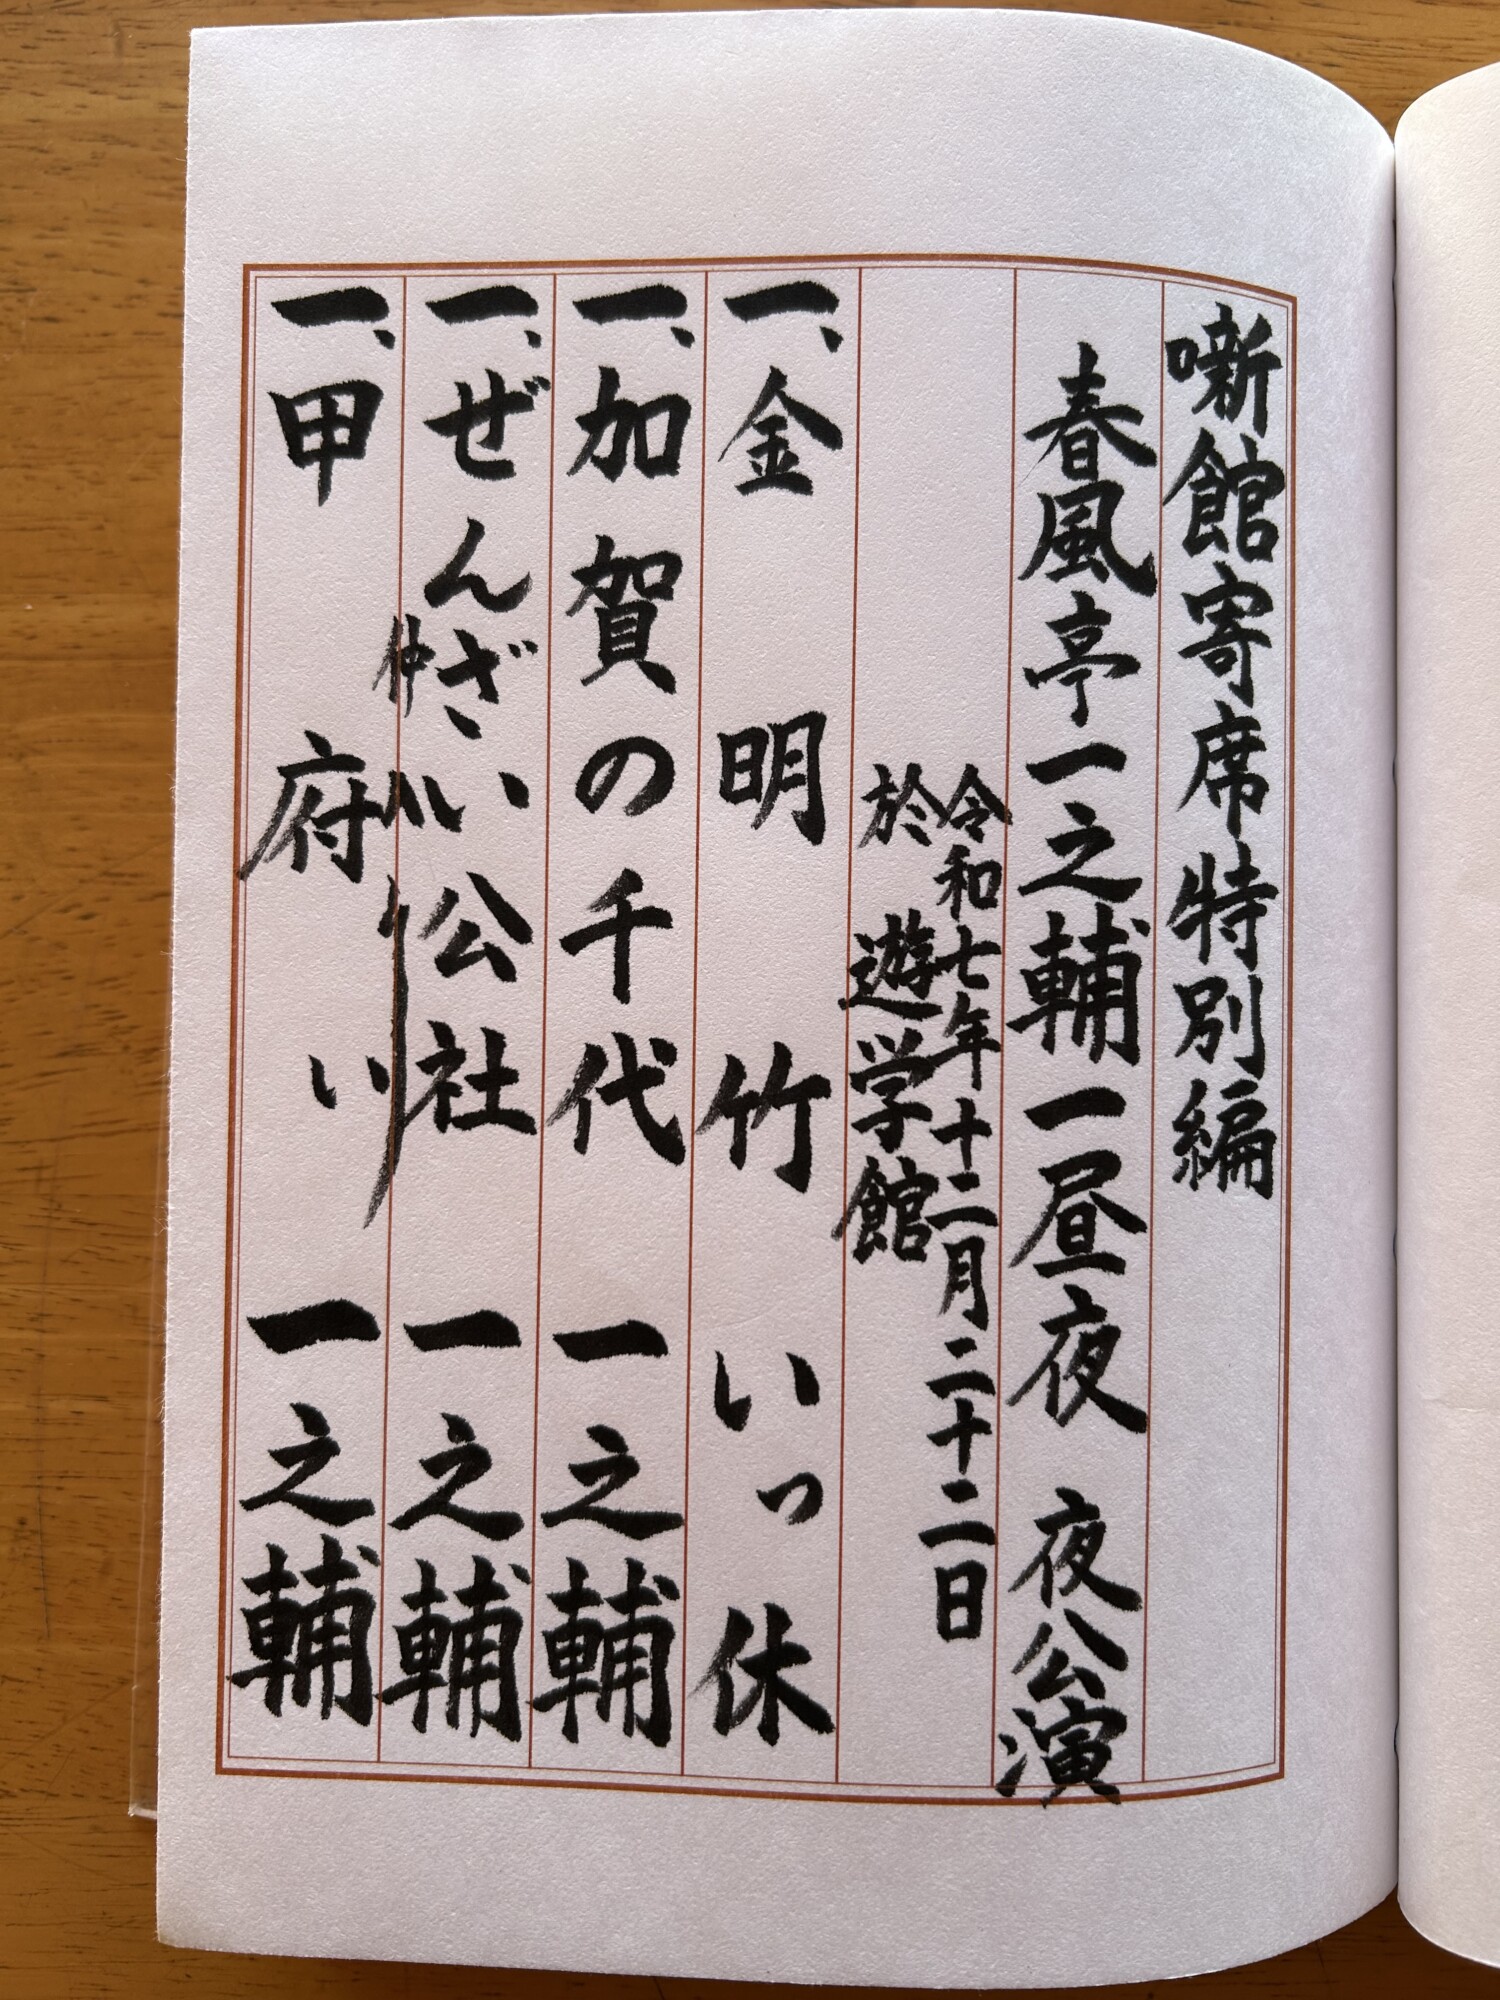 噺館寄席特別編
春風亭一之輔一昼夜 夜公演
令和七年十二月二十二日
於 遊学館
一、金明竹 いっ休
一、加賀の千代 一之輔
一、ぜんざい公社 一之輔
仲入り
一、甲府い 一之輔